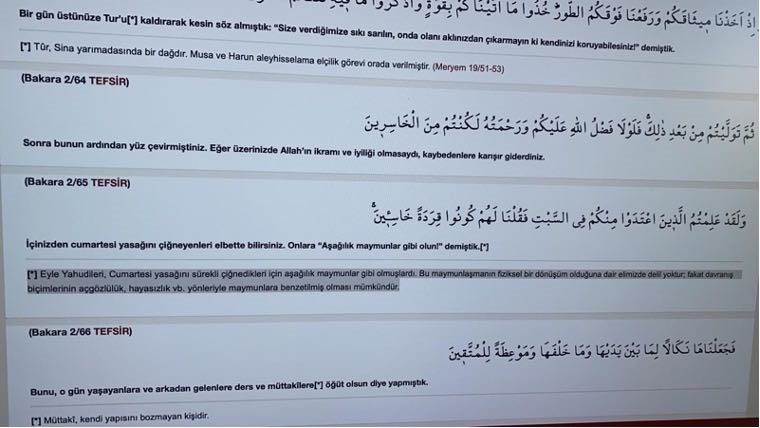 إِذْ أَخَذْنَا مِيثَاقَكُمْ وَرَفَعْنَا فَوْقَكُمُ الطُّورَ خُذُوا مَا آتَيْنَاكُمْ بِقُوَّةٍ وَاذْكُرُوا مَا فِيهِ
Bir gün üstünüze Tur'u[*] kaldırarak kesin söz almıştık: “Size verdiğimize sıkı sarılın, onda olanı aklınızdan çıkarmayın ki kendinizi koruyabilesiniz!” demiştik.
[*] Tûr, Sina yarımadasında bir dağdır. Musa ve Harun aleyhisselama elçilik görevi orada verilmiştir. (Meryem 19/51-53)
(Bakara 2/64 TEFSİR)
ثُمَّ تَوَلَّيْتُمْ مِنْ بَعْدِ ذٰلِكَۚ فَلَوْلَا فَضْلُ اللّٰهِ عَلَيْكُمْ وَرَحْمَتُهُ لَكُنْتُمْ مِنَ الْخَاسِرِينَ
Sonra bunun ardından yüz çevirmiştiniz. Eğer üzerinizde Allah'ın ikramı ve iyiliği olmasaydı, kaybedenlere karışır giderdiniz.
(Bakara 2/65 TEFSİR)
وَلَقَدْ عَلِمْتُمُ الَّذِينَ اعْتَدَوْا مِنْكُمْ فِي السَّبْتِ فَقُلْنَا لَهُمْ كُونُوا قِرَدَةً خَاسِـِٔينَۚ
İçinizden cumartesi yasağını çiğneyenleri elbette bilirsiniz. Onlara “Aşağılık maymunlar gibi olun!” demiştik.[*]
[*] Eyle Yahudileri, Cumartesi yasağını sürekli çiğnedikleri için aşağılık maymunlar gibi olmuşlardı. Bu maymunlaşmanın fiziksel bir dönüşüm olduğuna dair elimizde delil yoktur; fakat davranış
biçimlerinin açgözlülük, hayasızlık vb. yönleriyle maymunlara benzetilmiş olması mümkündür.
(Bakara 2/66 TEFSİR)
فَجَعَلْنَاهَا نَكَالًا لِمَا بَيْنَ يَدَيْهَا وَمَا خَلْفَهَا وَمَوْعِظَةً لِلْمُتَّقِينَ
Bunu, o gün yaşayanlara ve arkadan gelenlere ders ve müttakîlere[*] öğüt olsun diye yapmıştık.
[*] Müttakî, kendi yapısını bozmayan kişidir.